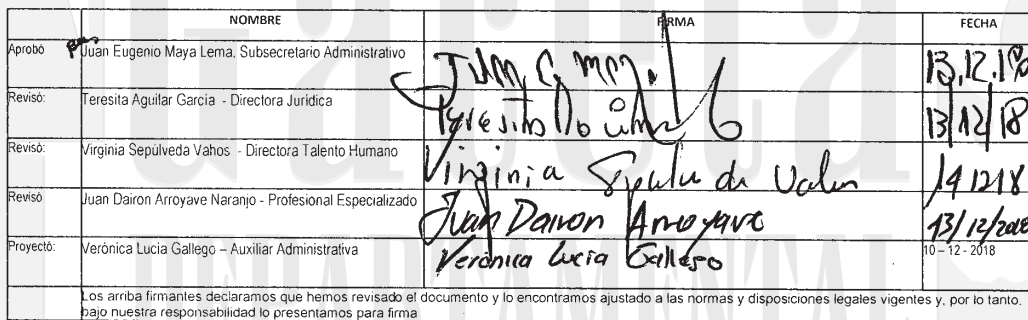 NOMBRE FIRMA FECHA
Aprobó Juan Eugenio Maya Lema, Subsecretario Administrativo 13.12.18
Revisó: Teresita Aguilar García - Directora Jurídica Teresita 13/12/18
Revisó: Virginia Sepúlveda Vahos - Directora Talento Humano Virginia 14 12 18
Revisó Juan Dairon Arroyave Naranjo - Profesional Especializado Juan Dairon Arroyave 13/12/2018
Proyectó: Verónica Lucía Gallego – Auxiliar Administrativa Verónica Lucía Gallego 10 – 12 - 2018
Los arriba firmantes declaramos que hemos revisado el documento y lo encontramos ajustado a las normas y disposiciones legales vigentes y, por lo tanto,
bajo nuestra responsabilidad lo presentamos para firma